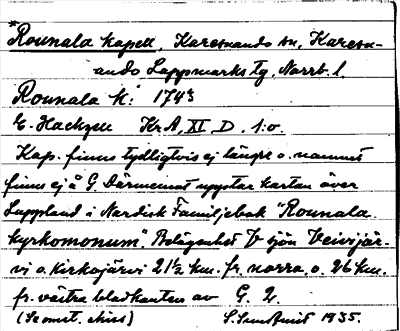 *Rounala kapell, Karesuando sn, Karesu-
ando Lappmarks tg, Norrb. l.
Rounala K: 1743
E. Hackzell KrA, XI D. 1:o.
Kap. finns tydligtvis ej längre o. namnet
finns ej å G. Därmemot upptar kartan över
Lappland i Nordisk Familjebok "Rounala
kyrkomonum". Belägenhet V sjön Veivijär-
vi o. Kirkojärvi 21½ km. fr. norra o. 26 km.
fr. västra bladkanten av G. 2.
1935.